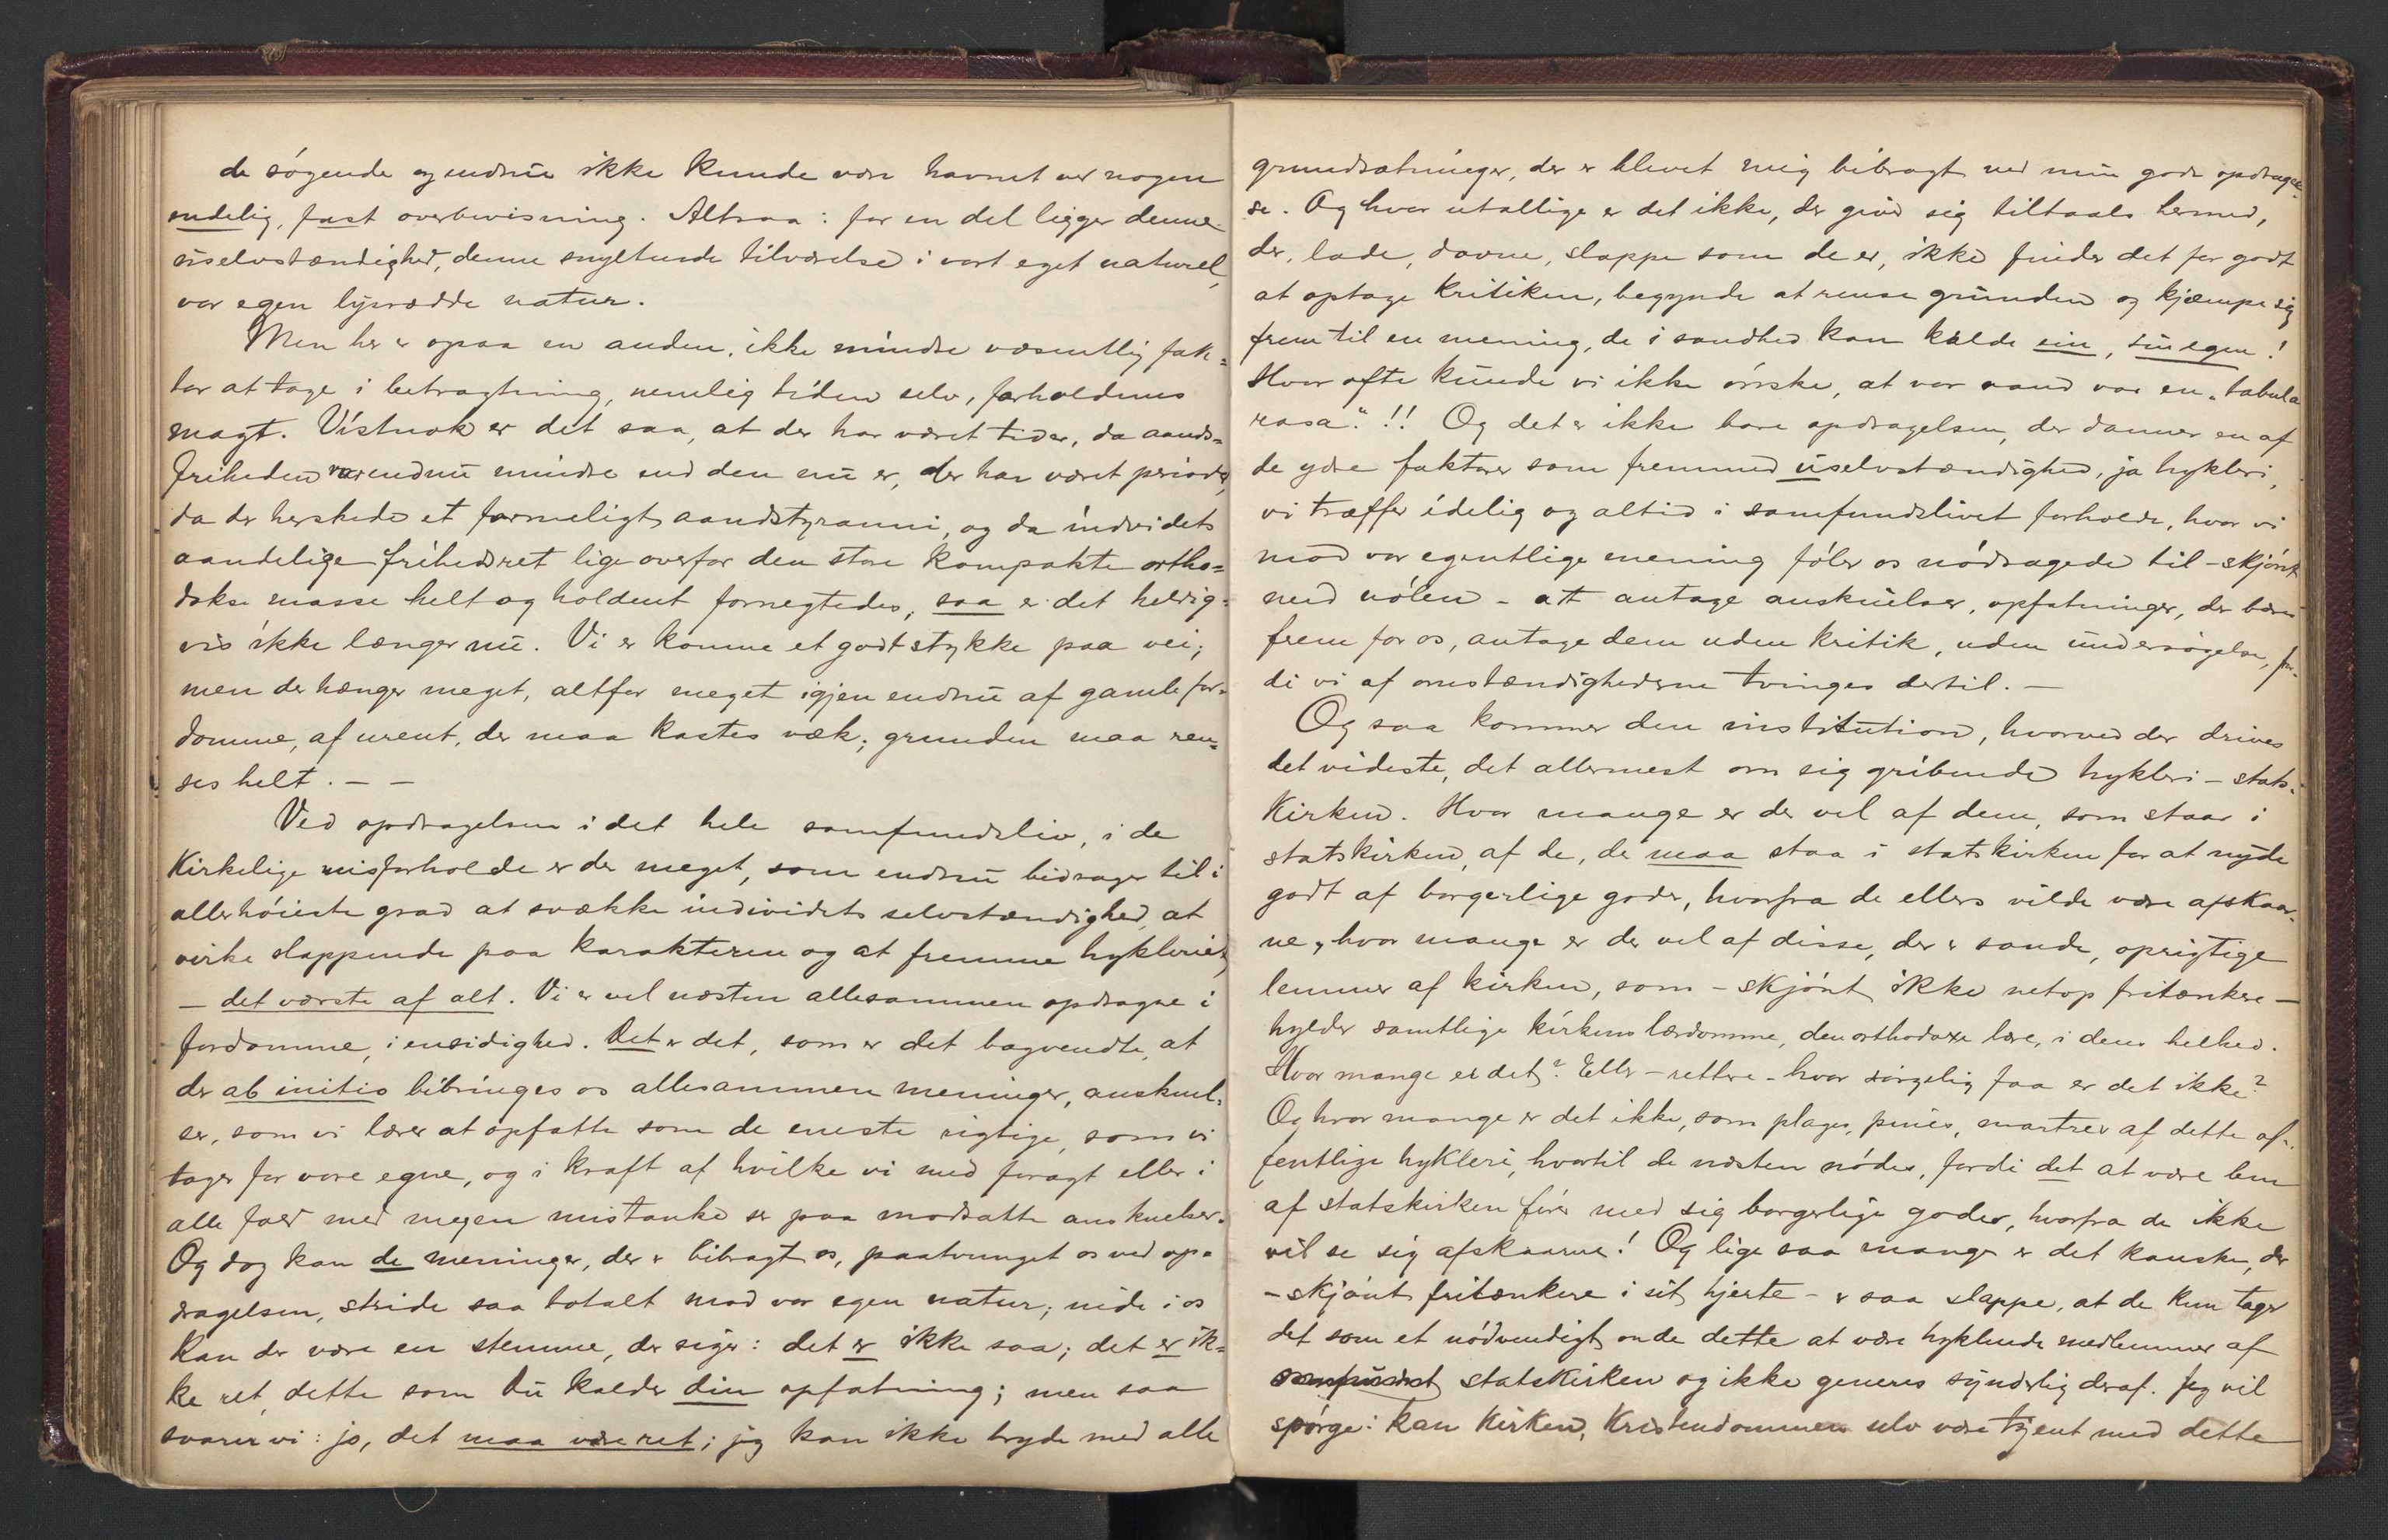 de søgende og endnu ikke kunde være havnet ved nogen
endelig, fast overbevisning. Altsaa: for en del ligger denne
uselvstændighed, denne snyltende tilværelse i vort eget naturel,
vor egen lysrædde natur.
Men her er ogsaa en anden, ikke mindre væsentlig fak=
tor at tage i betragtning, nemlig tiden selv, forholdenes
magt. Vistnok er det saa, at der har været tider, da aands=
friheden var endnu mindre end den nu er, der har været perioder,
da der herskede et formeligt aandstyranni, og da individets
aandelige frihedsret lige overfor den store kompakte ortho=
dokse masse helt og holdent fornegtedes, saa er det heldig=
vis ikke længer nu. Vi er komne et godt stykke paa vei;
men der hænger meget, altfor meget igjen endnu af gamle for=
domme, af urent, der maa kastes væk; grunden maa ren=
ses helt. – –
Ved opdragelsen i det hele samfundsliv, i de
kirkelige misforholde er der meget, som endnu bidrager til i
allerhøieste grad at svække individets selvstændighed, at
virke slappende paa karakteren og at fremme hykleriet,
– det værste af alt. Vi er vel næsten allesammen opdragne i
fordomme, i ensidighed. Det er det, som er det bagvendte, at
der ab initio bibringes os allesammen meninger, anskuel=
ser, som vi lærer at opfatte som de eneste rigtige, som vi
tager for vore egne, og i kraft af hvilke vi med foragt eller i
alle fald med megen mistanke ser paa modsatte anskuelser.
Og dog kan de meninger, der er bibragt os, paatvunget os ved op=
dragelsen, stride saa totalt mod vor egen natur; inde i os
kan der være en stemme, der siger: det er ikke saa; det er ik=
ke ret, dette som du kalder din opfatning; men saa
svarer vi: jo, det maa være ret; jeg kan ikke bryde med alle
grundsætninger, der er blevet mig bibragt ved min gode opdragel=
se. Og hvor utallige er det ikke, der giver sig tiltaals hermed,
der, lade, dovne, slappe som de er, ikke finder det for godt
at optage kritiken, begynde at rense grunden og kjæmpe sig
frem til en mening, de i sandhed kan kalde sin, sin egen!
Hvor ofte kunde vi ikke ønske, at vor aand var en „tabula
rasa“!! Og det er ikke bare opdragelsen, der danner en af
de ydre faktorer som fremmed uselvstændighed, ja hykleri,
vi træffer idelig og altid i samfundslivet forholde, hvor vi
mod vor egentlige mening føler os nødsagede til – skjønt
med nølen – att antage anskuelser, opfatninger, der bæres
frem for os, antage dem uden kritik, uden undersøgelse, for=
di vi af omstændighederne tvinges dertil. –
Og saa kommer den institution, hvorved der drives
det videste, det allermest om sig gribende hykleri – stats=
kirken. Hvor mange er der vel af dem, som staar i
statskirken, af de, der maa staa i statskirken for at nyde
godt af borgerlige goder, hvorfra de ellers vilde være afskaar=
ne, hvor mange er der vel af disse, der er sande, oprigtige
lemmer af kirken, som – skjønt ikke netop fritænkere –
hylder samtlige kirkens lærdomme, den orthodoxe lære, i dens helhed.
Hvor mange er det? Eller – rettere – hvor sørgelig faa er det ikke?
Og hvor mange er det ikke, som plages, pines, martres af dette of=
fentlige hykleri, hvortil de næsten nødes, fordi det at være lem
af statskirken fører med sig borgerlige goder, hvorfra de ikke
vil se sig afskaarne! Og lige saa mange er det kanske, der
– skjønt fritænkere i sit hjerte – er saa slappe, at de kun tager
det som et nødvendigt onde dette at være hyklende medlemmer af
samfundet statskirken og ikke generes synderlig deraf. Jeg vil
spørge: kan kirken, kristendommen selv være tjent med dette